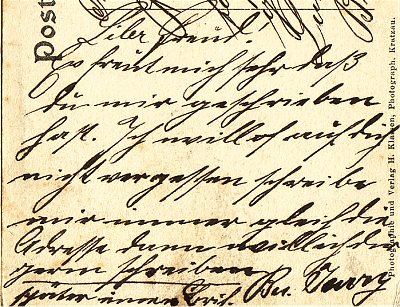 Post
Liber Freud!
Es freut mich sehr daß
du mir geschrieben
hast. Ich will of auf dich
nicht vergessen schreibe
mir immer gleich die
Adresse dann will ich dir
germ schreiben
später einen
Photographie und Verlag H. Klossen, Photograph, Kratzau.